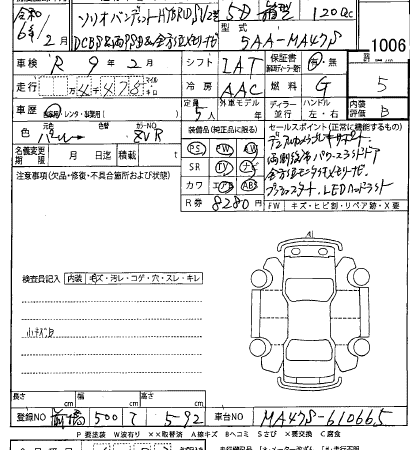 令和
6年/2月
ソリオバンディット HYBRID SV 2型
5D 箱型
1200c
DCBS&両PSD&全方位メモリーナビ
型式 5AA-MA47S
1006
車検 R 9年2月
シフト IAT
保証書 有・無
走行 4478 マイル キロ
冷房 AAC
燃料 G
5
車歴 自家用・レンタ・事業用( )
定員 5人
外車モデル
ディーラー 並行
ハンドル 左・右
内装 B
色 元色 パール 色替 カラーNO ZVR
装備品(純正品に限る)
セールスポイント(正常に機能するもの)
名義変更期限 月 日迄 積載 t
PS PW AW
SR TV ナビ
カワ エアB ABS
R券 8280円
全方位モニタ付メモリーナビ
プッシュスタート LEDヘッドライト
FW キズ・ヒビ割・リペア跡・X要
注意事項(欠品・修復・不具合箇所および状態)
検査員記入 内装 モズ・汚レ・コゲ・穴・スレ・キレ
小キズ
長さ cm 幅 cm 高さ cm
登録NO 前橋 500 て 5-92
車台NO MA47S-610665
P 要塗装 W波有り ××取替済 A線キズ Bヘコミ Sさび ×要交換 C腐食